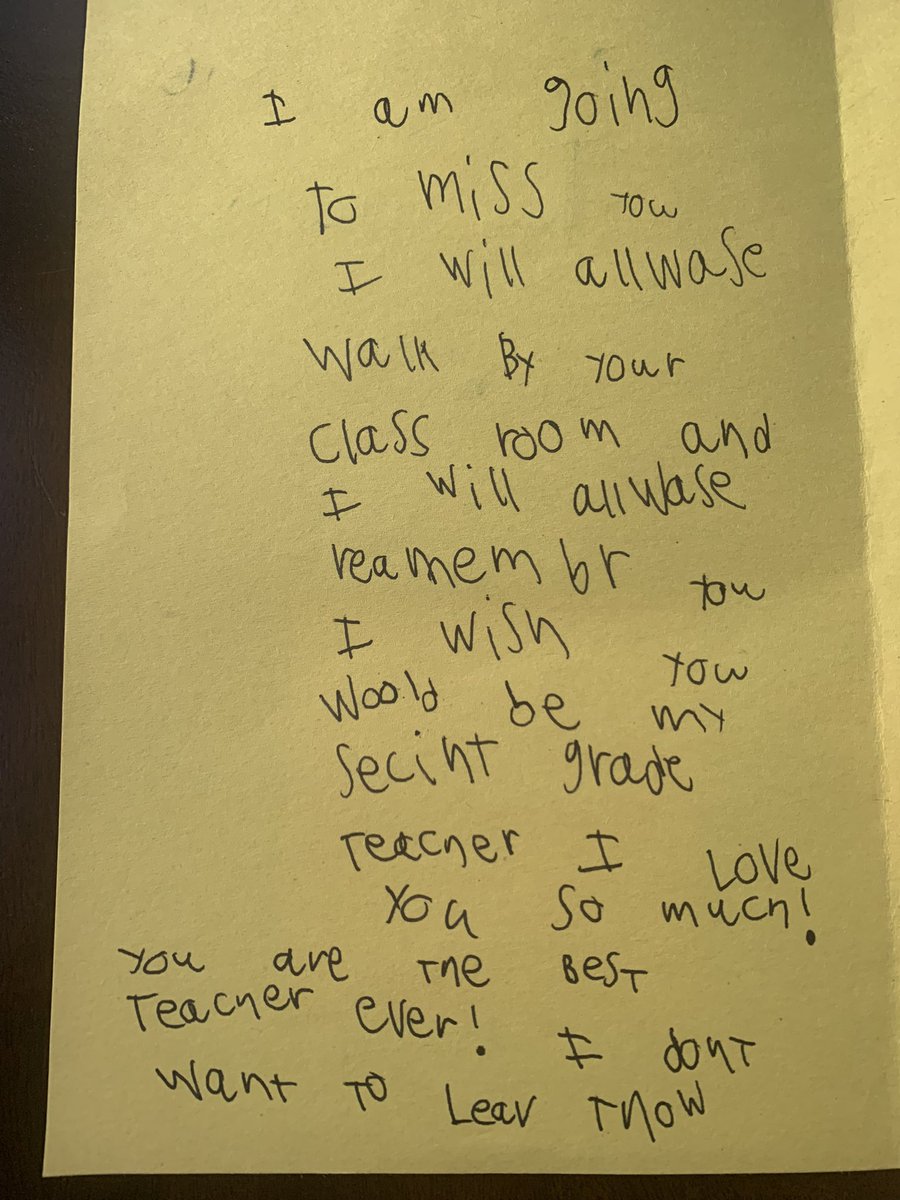 I am going
to miss you
I will allwase
walk By your
class room and
I will allwase
reamembr you
I wish you
woold be my
secint grade
teacher I Love
you so much!
you are the Best
Teacher ever! I dont
want to Leav thow